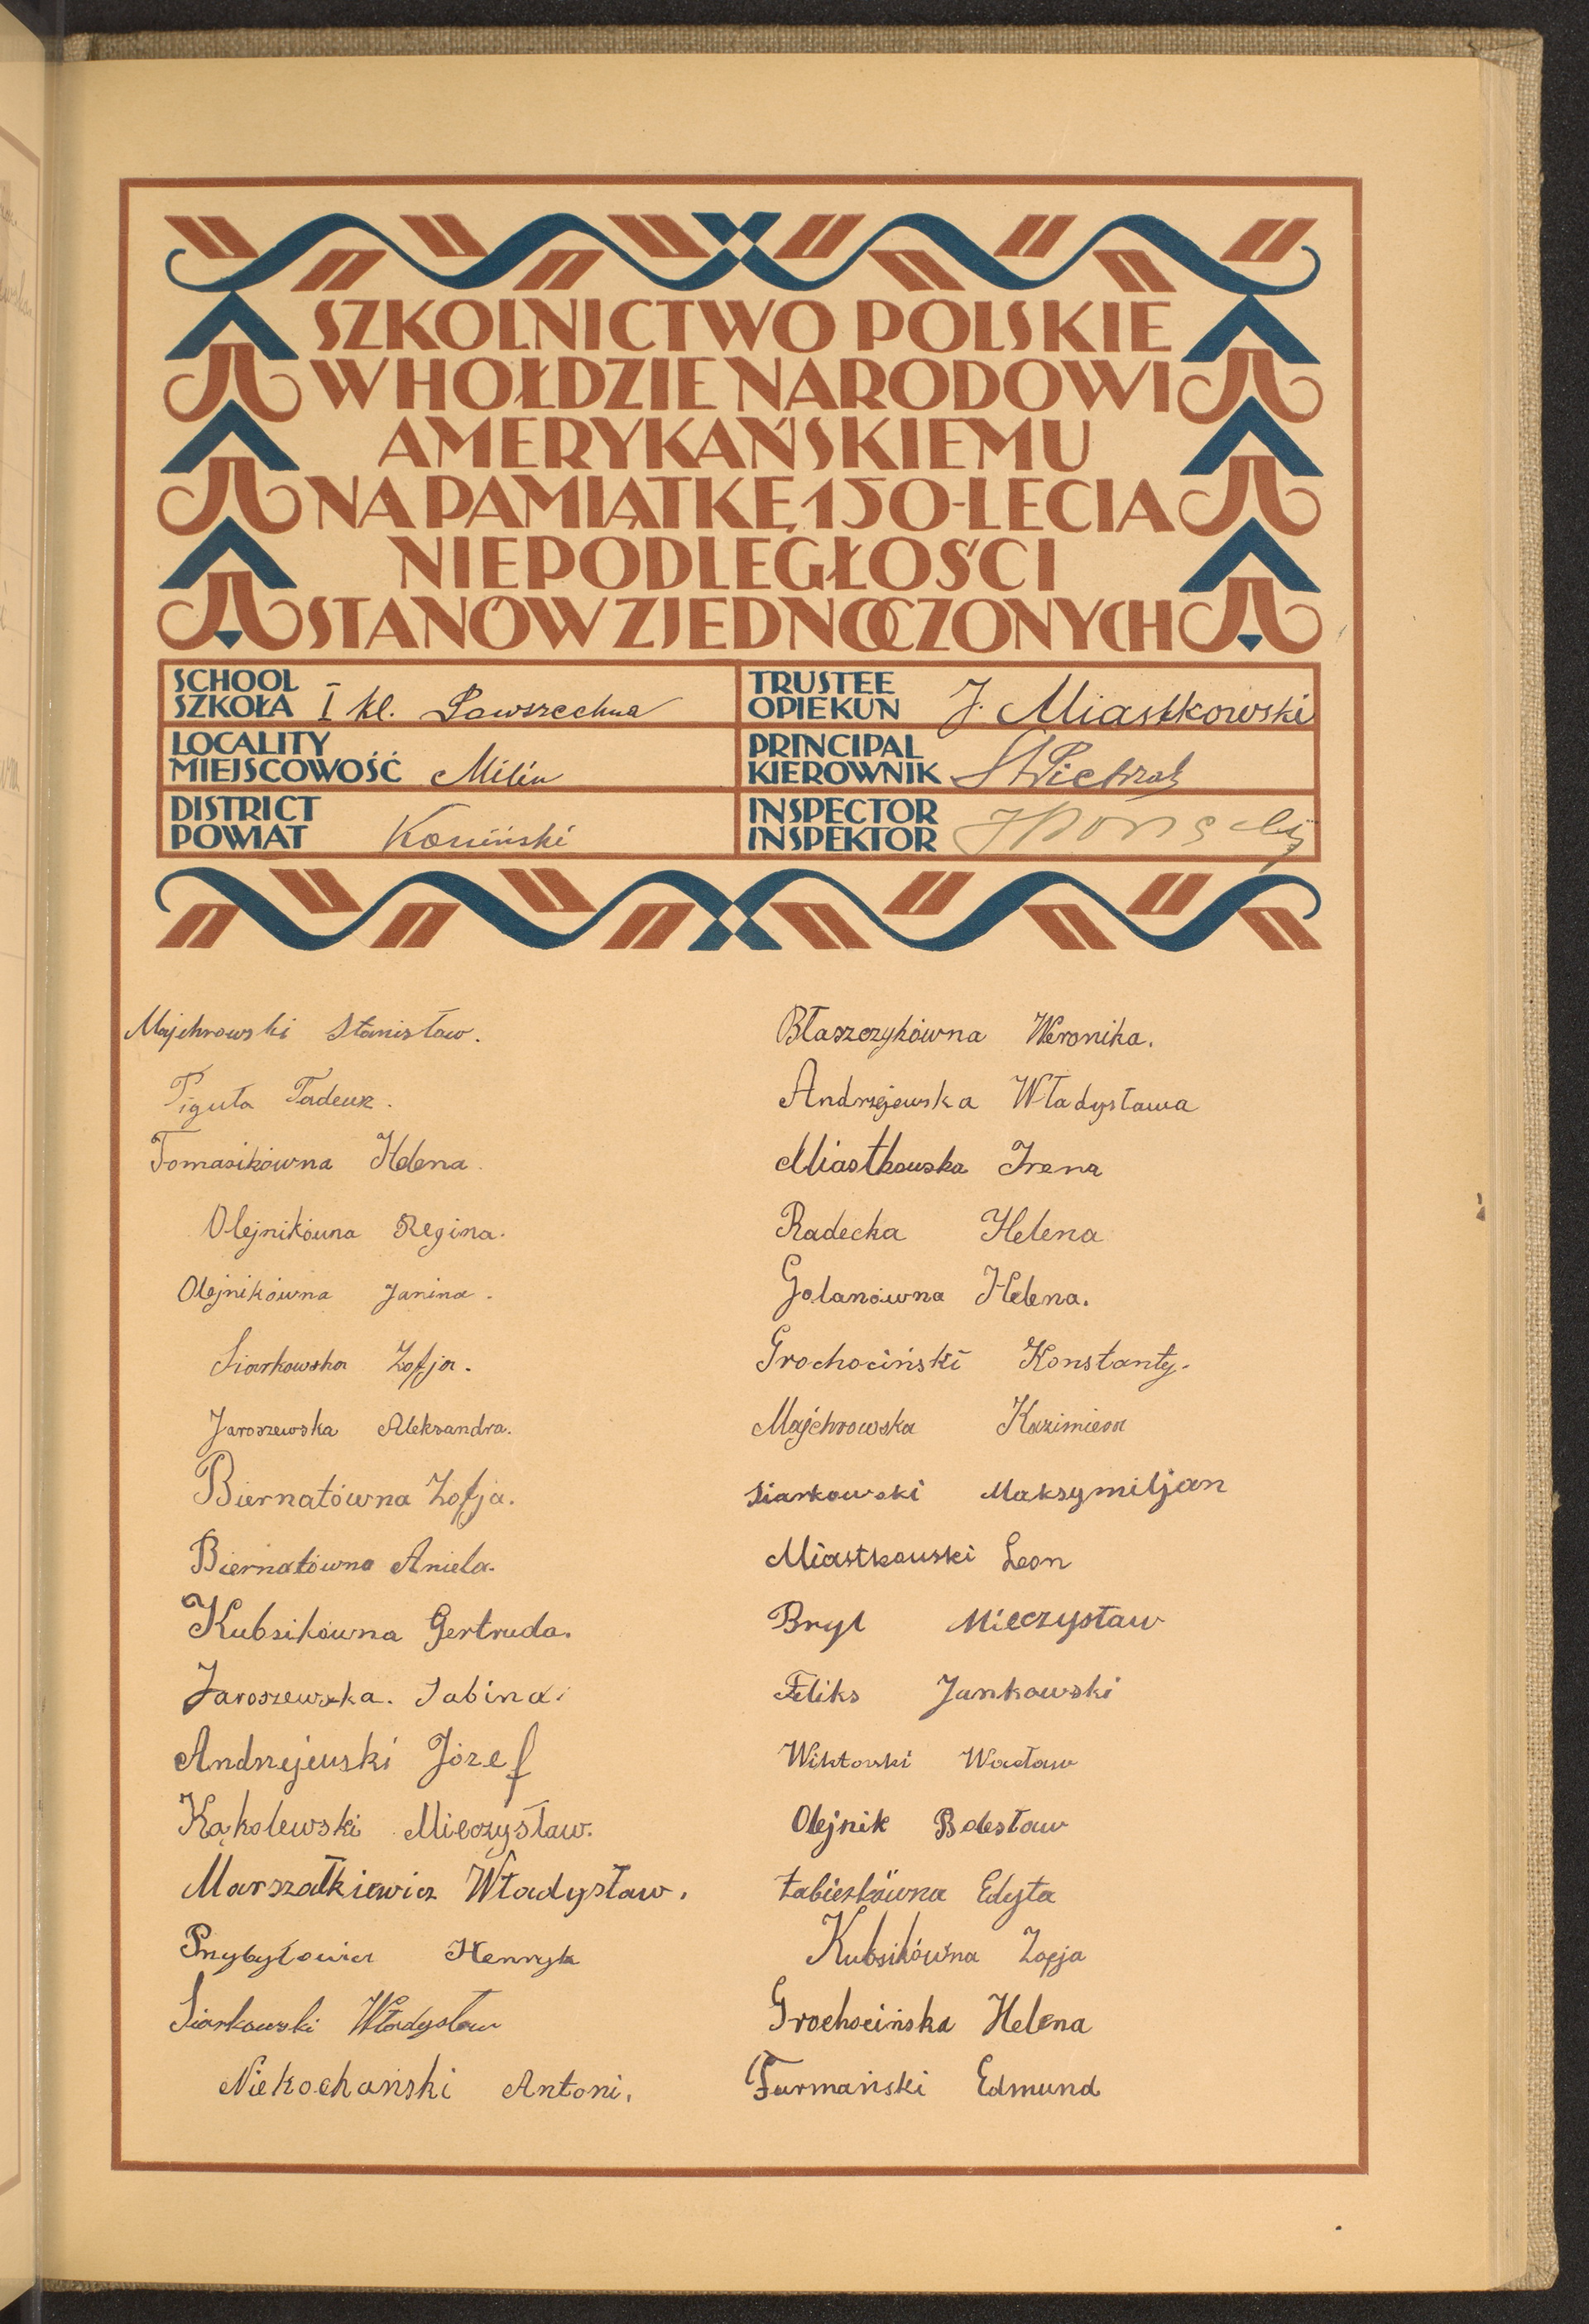 SZKOLNICTWO POLSKIE
W HOŁDZIE NARODOWI
AMERYKAŃSKIEMU
NA PAMIĄTKĘ 150-LECIA
NIEPODLEGŁOŚCI
STANÓW ZJEDNOCZONYCH
SCHOOL
SZKOŁA I kl. Powszechna
TRUSTEE
OPIEKUN J. Miastkowski
LOCALITY
MIEJSCOWOŚĆ Milin
PRINCIPAL
KIEROWNIK
DISTRICT
POWIAT Koniński
INSPECTOR
INSPEKTOR
Majchrowski Stanisław.
Piguła Tadeusz.
Tomasikówna Helena.
Olejnikówna Regina.
Olejnikówna Janina.
Siarkowska Zofja.
Jaroszewska Aleksandra.
Biernatówna Zofja.
Biernatówna Aniela.
Kubsikówna Gertruda.
Jaroszewska. Sabina.
Andrzejewski Józef
Kąkolewski Mieczysław.
Marszałkiewicz Władysław.
Przybyłowicz Henryk
Siarkowski Władysław
Niekochański Antoni.
Błaszczykówna Weronika.
Andrzejewska Władysława
Miastkowska Irena
Radecka Helena
Golanówna Helena.
Grochociński Konstanty.
Majchrowska Kazimiera
Siarkowski Maksymiljan
Miastkowski Leon
Bryl Mieczysław
Feliks Jankowski
Wiktorski Wacław
Olejnik Bolesław
Łabieskówna Edyta
Kubsikówna Zofja
Grochocińska Helena
Furmański Edmund